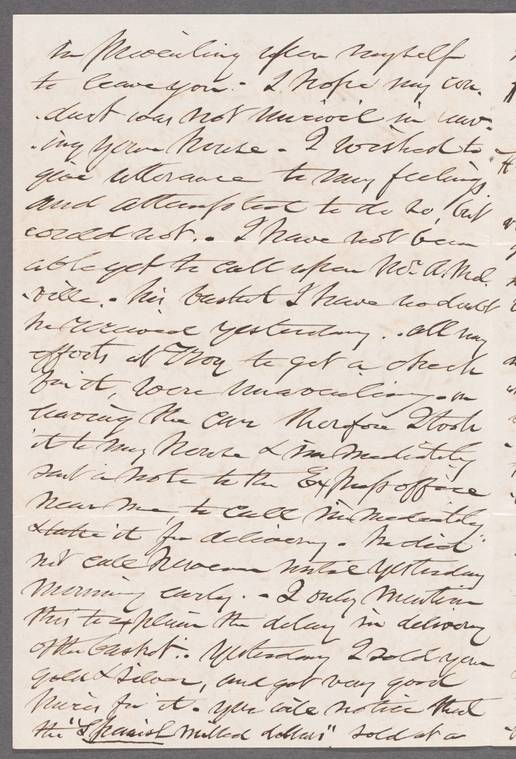 in prevailing upon myself
to leave you - I hope my con-
-duct was not uncivil in leav-
-ing your house - I wished to
give utterance to my feelings
and attempted to do so, but
could not. - I have not been
able yet to call upon Mr. A. Mel-
-ville. - his basket I have no doubt
he received yesterday. - all my
efforts at Troy to get a check
for it, were unavailing - on
leaving the cars therefore I took
it to my house & immediately
sent a note to the Express office
near me to call immediately
& take it for delivery. - he did
not call however until yesterday
morning early. - I only mention
this to explain the delay in delivery
of the basket. - Yesterday I sold your
gold & silver, and got very good
prices for it - you will notice that
the "Spanish milled dollars" sold at a